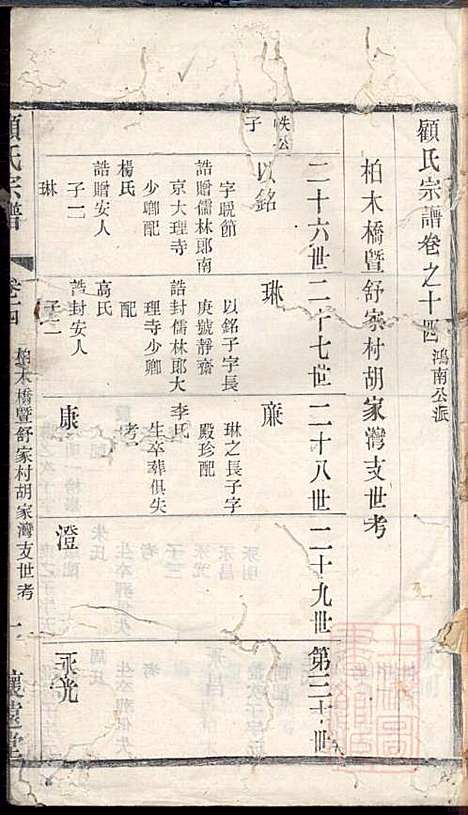 顧氏宗譜卷之十四 鴻南公派
柏木橋暨舒家村胡家灣支世考
二十六世
二十七世
二十八世
二十九世
第三十世
公
子
以銘
字
節
誥贈儒林郎南
京大理寺
少卿配
楊氏
誥贈安人
子一
琳
琳
以銘子字長
庚號靜齋
誥封儒林郎大
理寺少卿
配
高氏
誥封安人
子二
廉
琳之長子字
殿珍配
李氏
生卒葬俱失
考
康
澄
永光
顧氏宗譜
卷十四
柏木橋暨舒家村胡家灣支世考
一